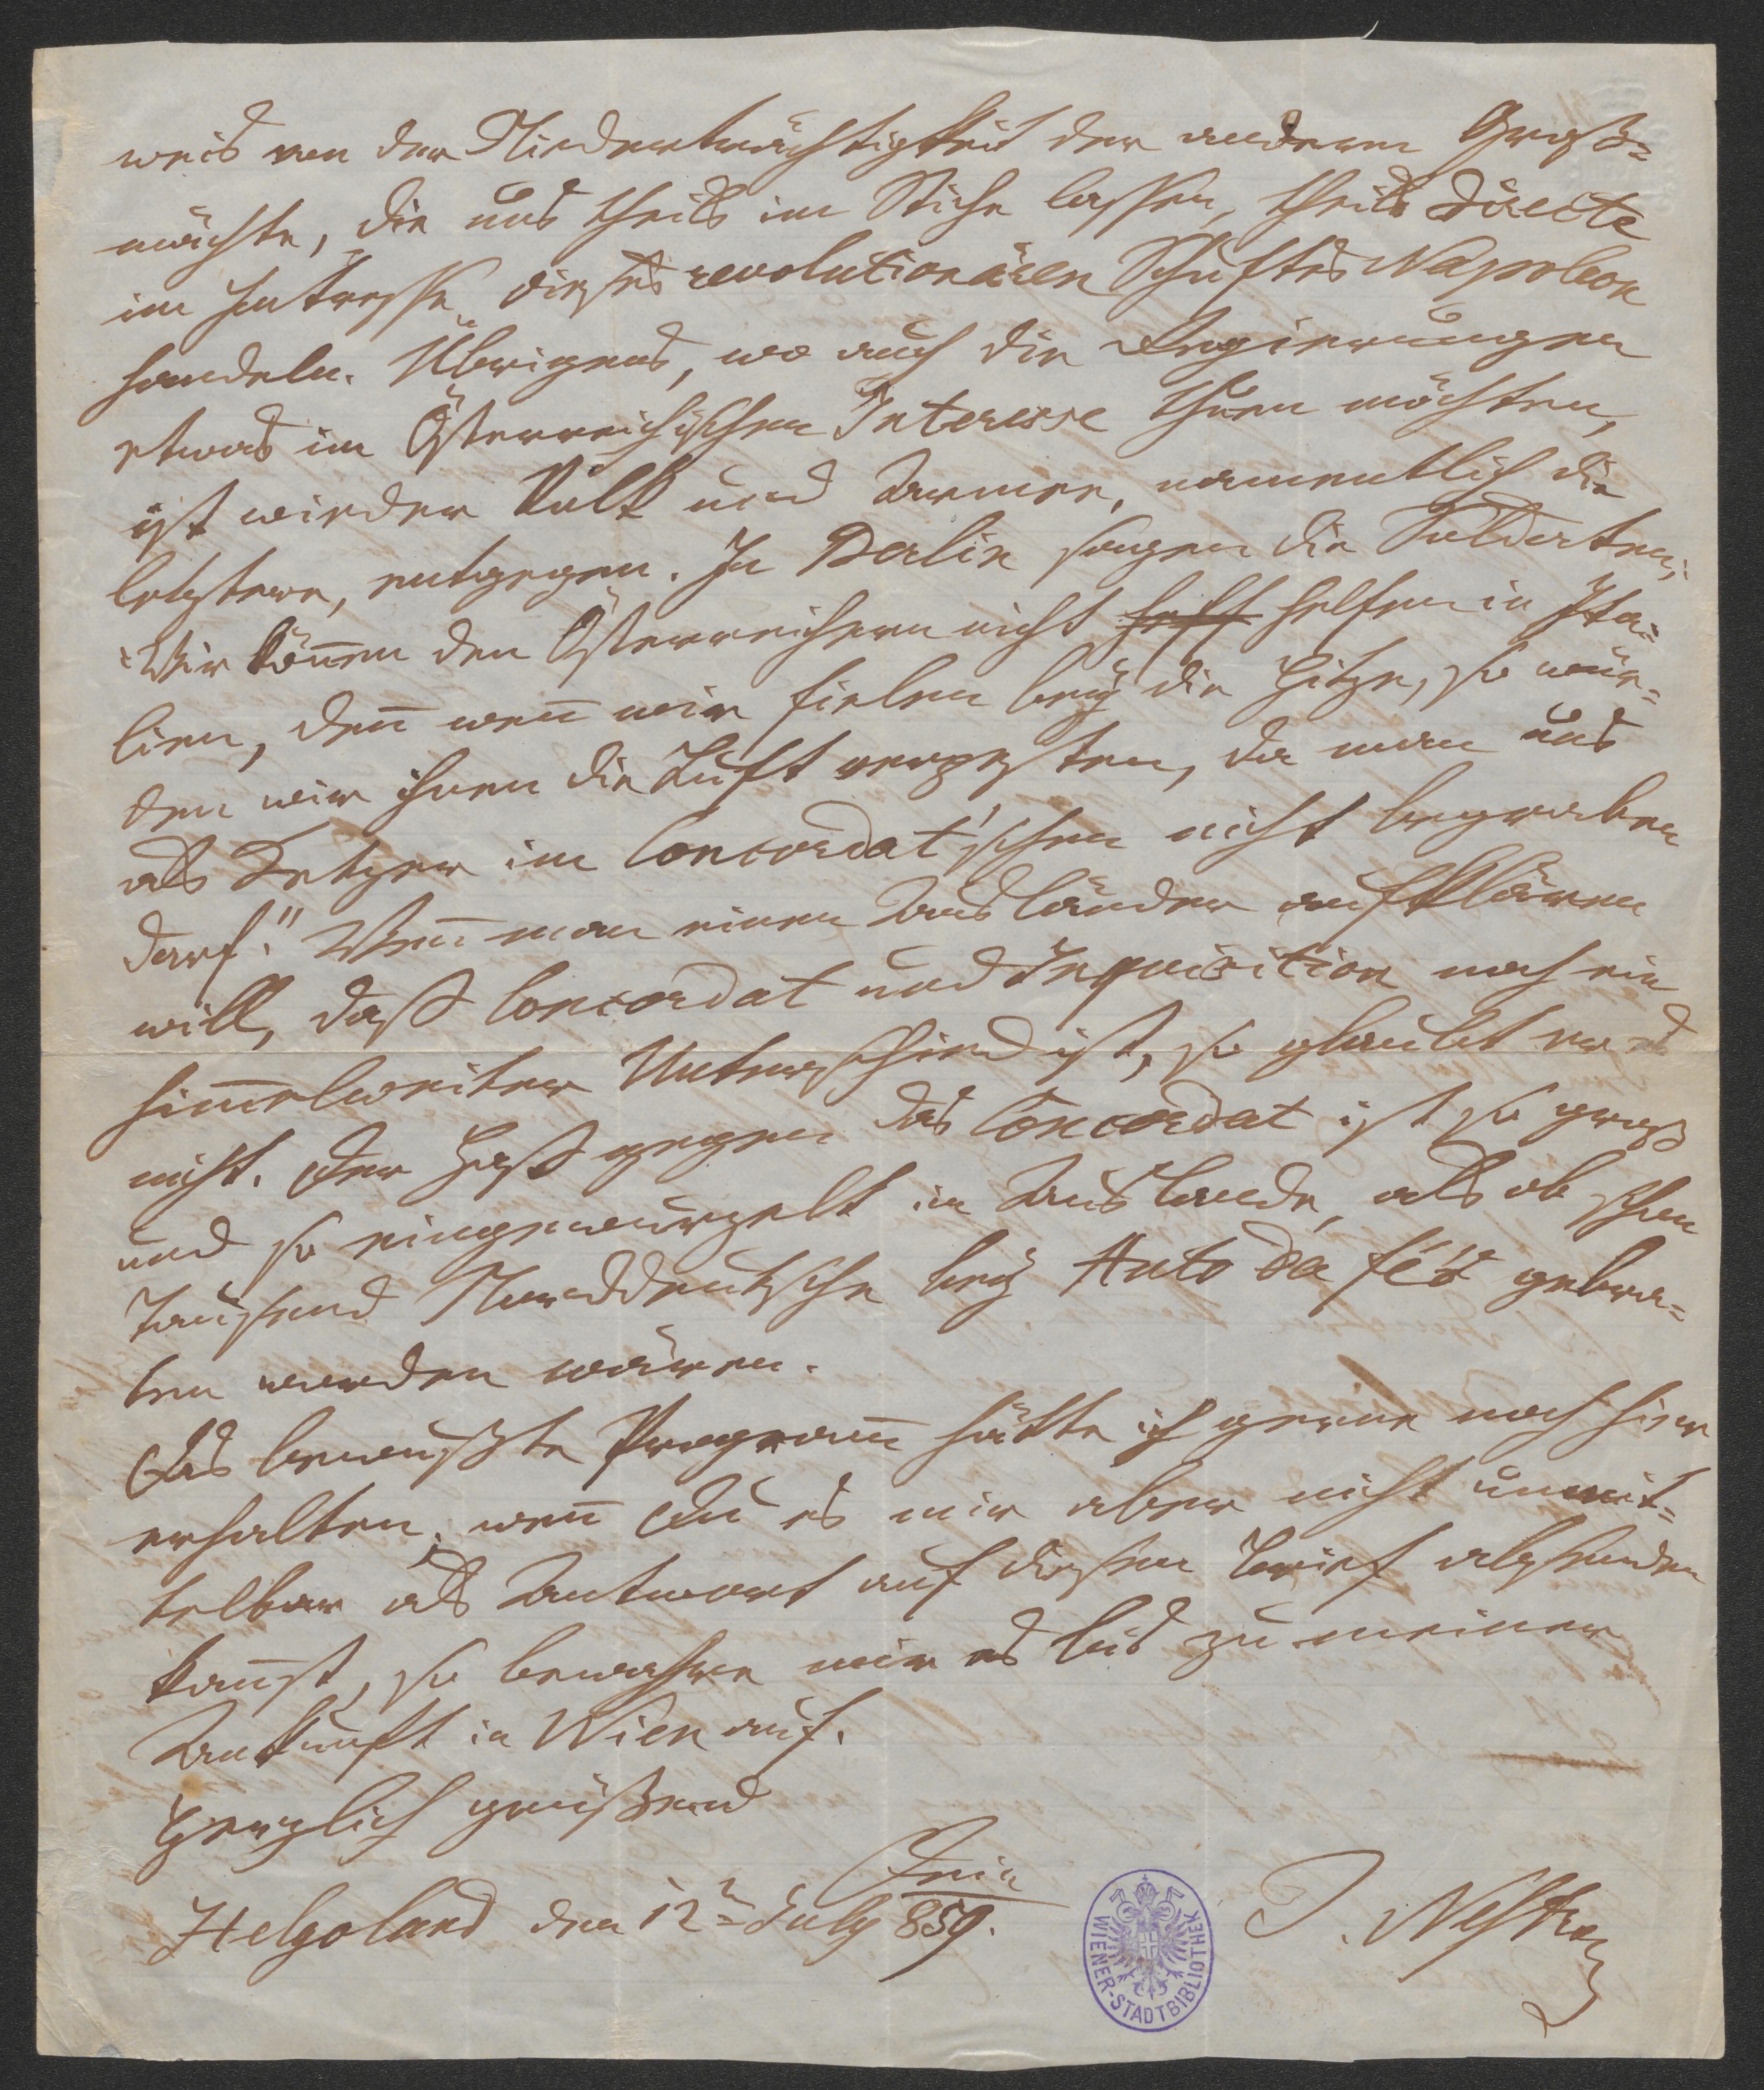 weis von der Niederträchtigkeit der andern Groß=
mächte, die uns theils im Stiche lassen, theils directe
im Intresse dieses revolutionären Schuftes Napoleon
handeln. Übrigens, wo auch die Regierungen
etwas im Österreichischen Interesse thuen möchten,
ist wieder Volk und Armee, namentlich die
letztere, entgegen. In Berlin sagen die Soldaten;
"Wir kön̄en den Österreichern nicht helff helfen in Ita=
lien, den̄ wen̄ wir fielen bey die Hitze, so wür=
den wir ihnen die Luft verpesten, da man uns
als Ketzer im Concordat'schen nicht begraben
darf." Wen̄ man einen Ausländer aufklären
will, daß Concordat und Inquisition noch ein
him̄elweiter Unterschied ist, so glaubt er es
nicht. Der Haß gegen das Concordat ist so groß
und so eingewurzelt im Auslande, als ob schon
Tausend Norddeutsche bey Auto da fé's gebra=
ten worden wären.
Das bewußte Program̄ hätte ich gerne noch hier
erhalten; wen̄ Du es mir aber nicht unmit=
telbar als Antwort auf diesen Brief absenden
kan̄st, so bewahre mir es bis zu meiner
Ankunft in Wien auf.
Herzlich grüßend
Dein
Helgoland den 12ᵗᵉⁿ July 859. J. Nestroy
WIENER-STADTBIBLIOTHEK